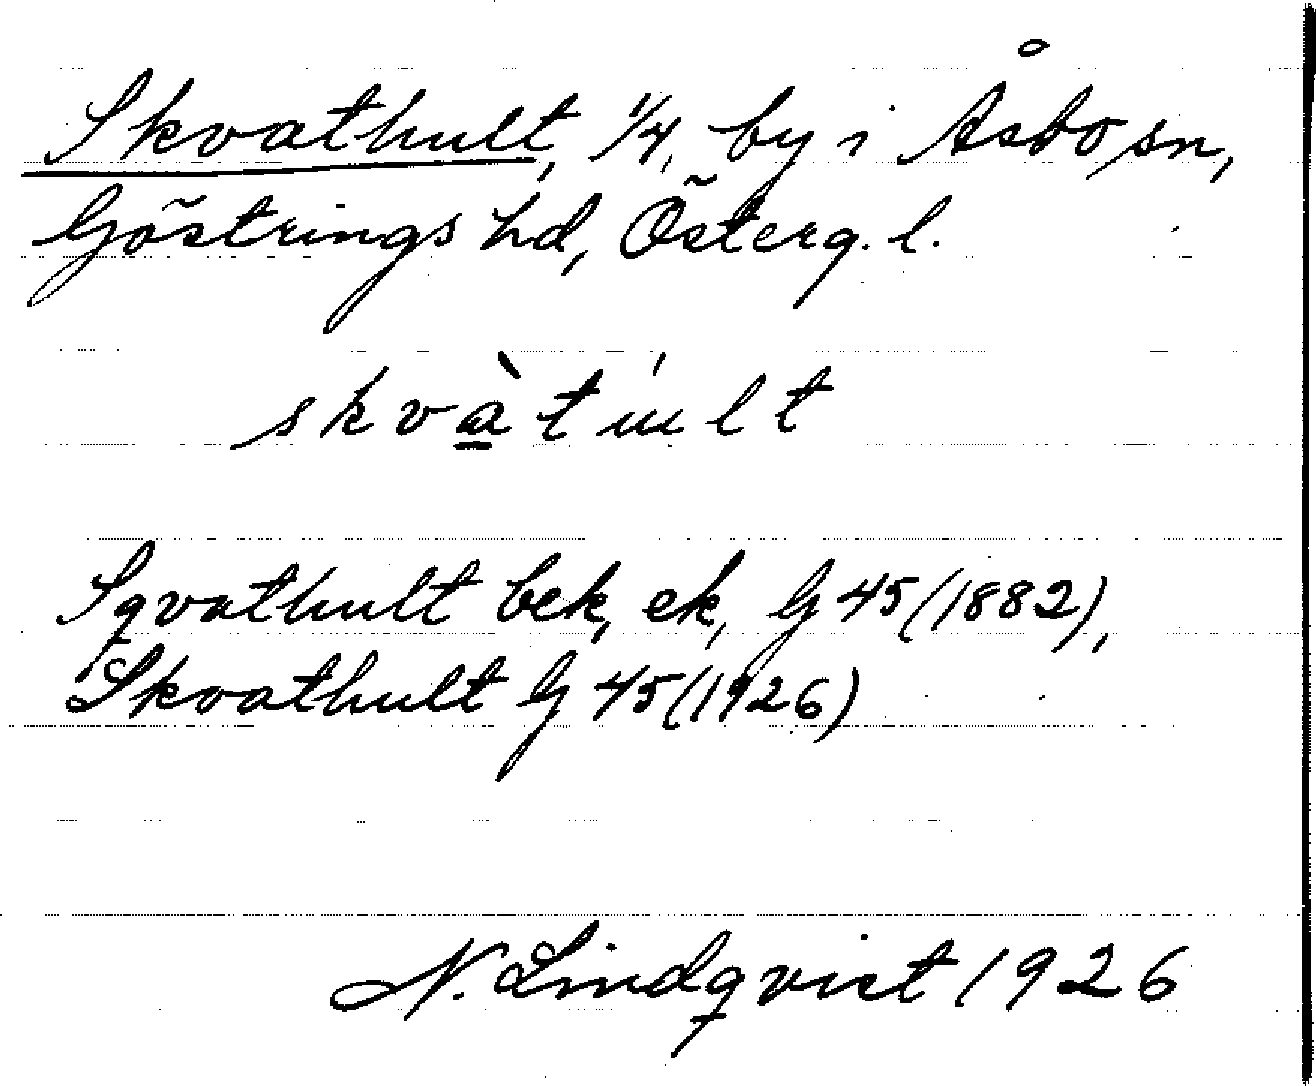 Skvathult, 1/4, by i Åsbo sn,
Göstrings hd, Österg. l.
skvàtult
Sqvathult bek, ek, G 45 (1882),
Skvathult G 45 (1926)
N. Lindqvist 1926